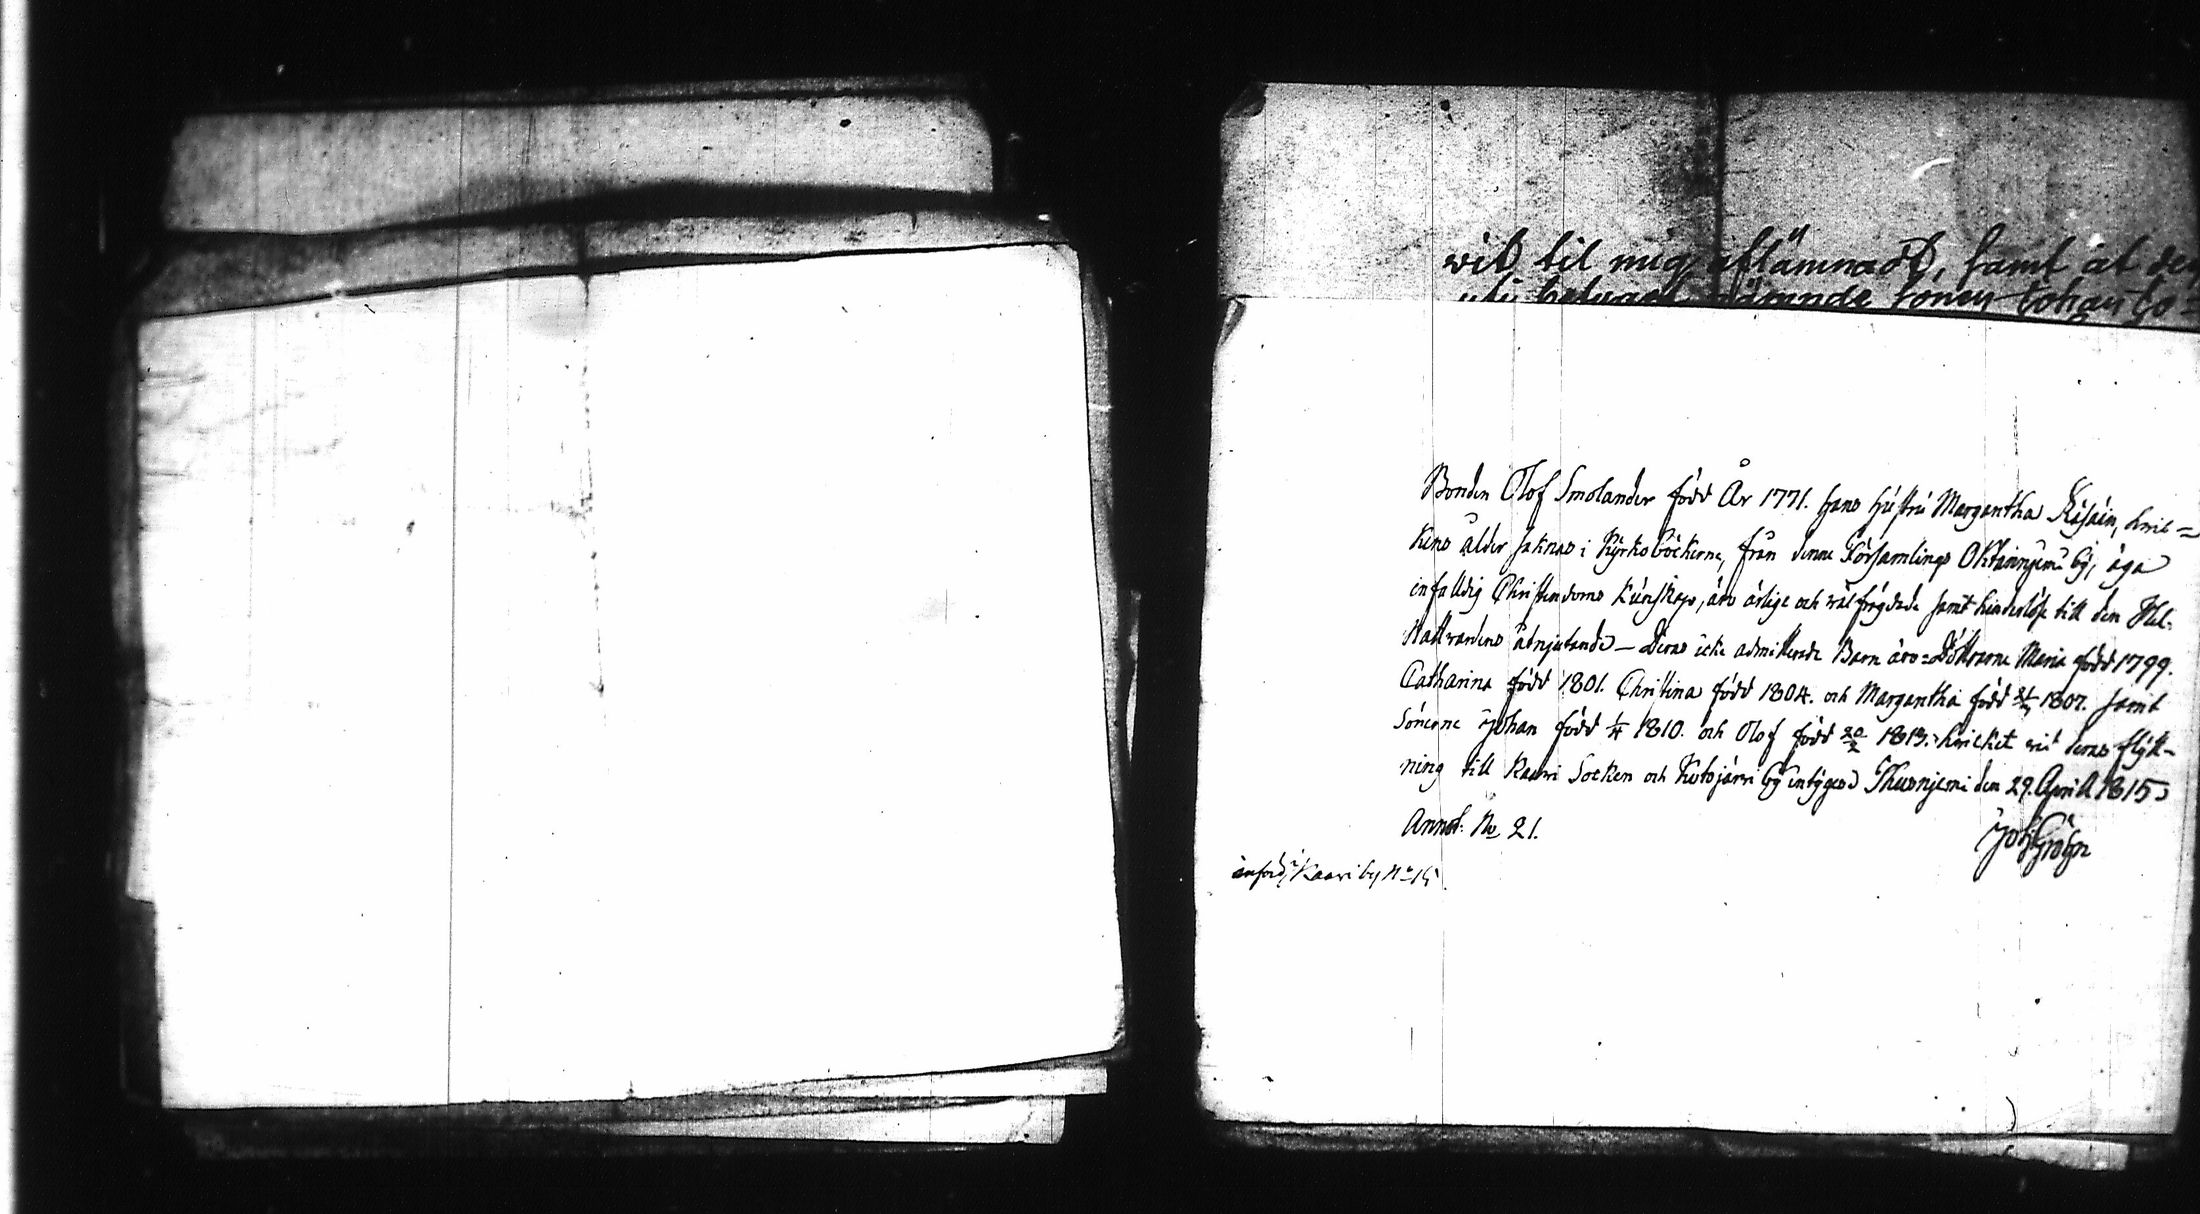 vid til mig aflämnadt, samt at den
uti nämnde
Bonden Olof Smolander född År 1771. hans hústrú Margaretha hvil=
kens ålder saknas i Kyrkoböckerne, från denna Församlings by, äga
enfalldig Christendoms kúnskap, äro ärlige och välfrägdade samt hinderlöse till den Hel.
Nattvardens åtnjutande – Deras icke admitterade Barn äro: Döttrarne Maria född 1799.
Catharina född 1801. Christina född 1804. och Margaretha född 1807. samt
Sönerne Johan född 1/4 1810. och Olof född 20/2 1813. hvilket vid deras flytt-
ning till Kaavi Socken och by intygas Thusnjemi den 29. April 1815
Annot: No 21.
införd i Kaavi by No 15